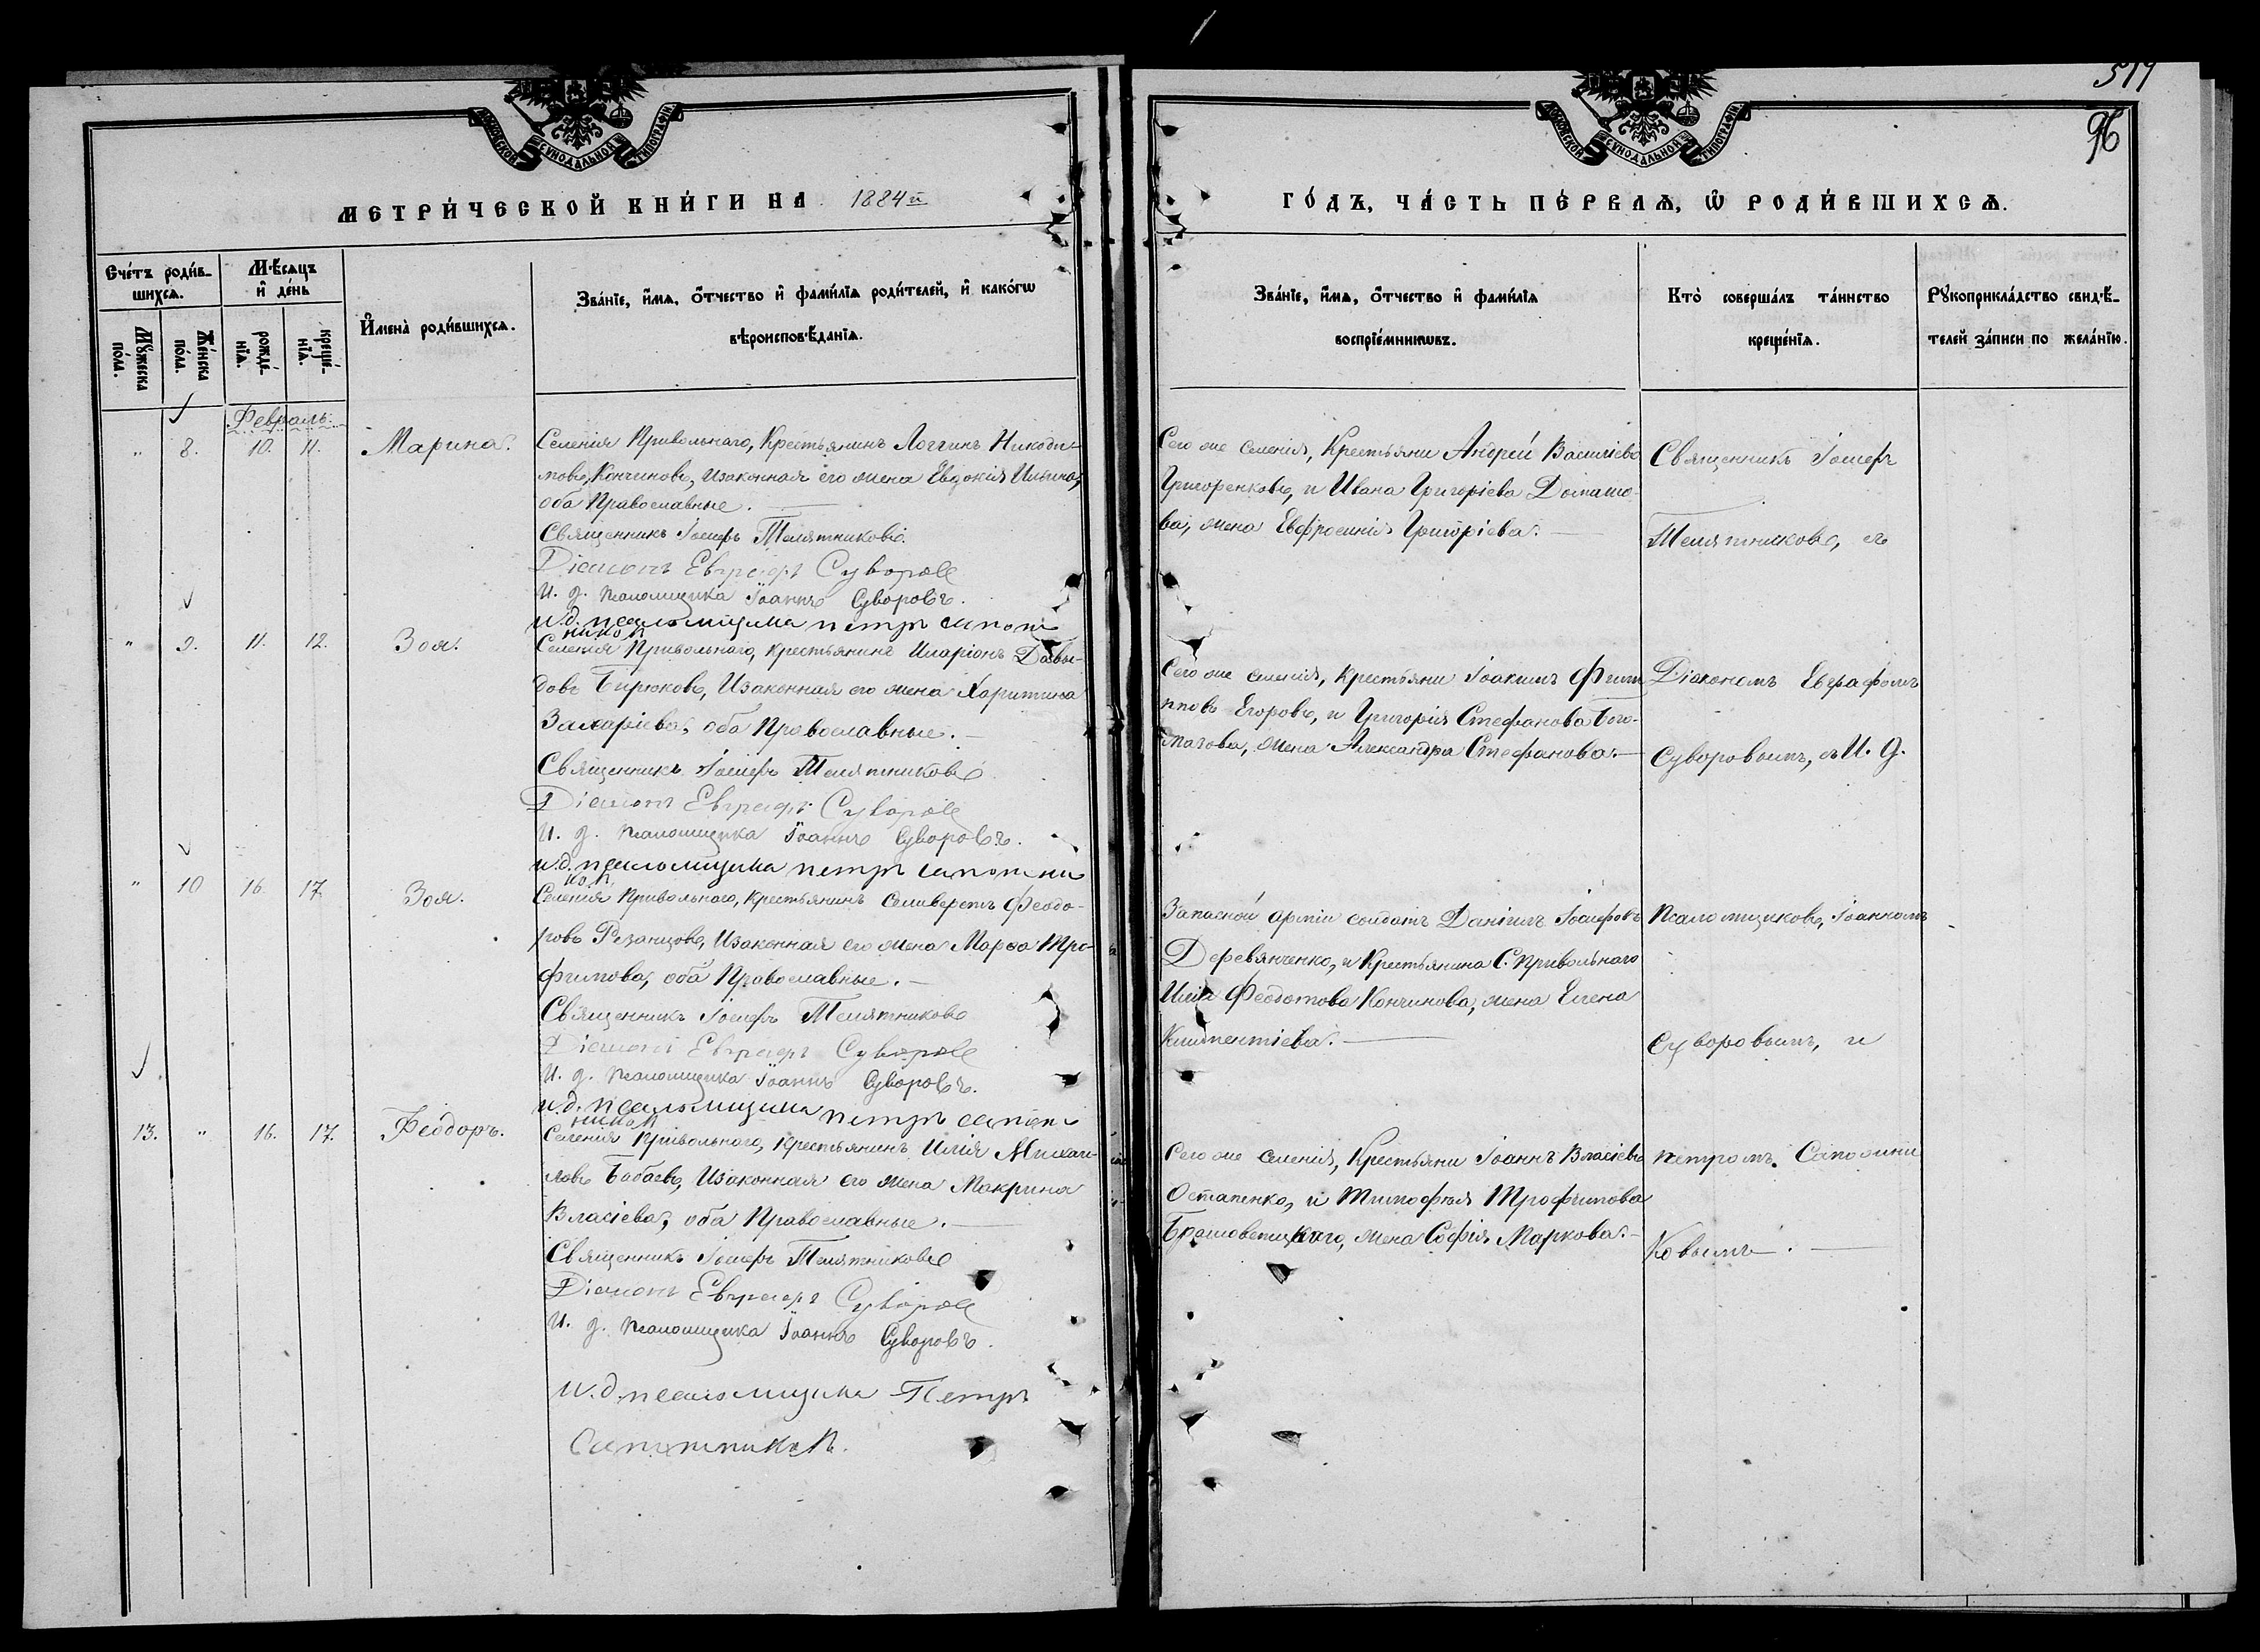 519
96
МОСКОВСКОЙ СѴНОДАЛЬНОЙ ТИПОГРАФІИ
МЕТРИ́ЧЕСКОЙ КНИ́ГИ НА 1884й
Сче́тъ роди́в-
шихсѧ.
Мѣ́сяцъ
и҆ де́нь
Мꙋ́жеска
по́ла.
Же́нска
по́ла.
рожде́-
нїѧ.
креще́-
нїѧ.
И҆мена̀ роди́вшихсѧ.
Зва́нїе, и҆́мѧ, ѻ҆́тчество и҆ фами́лїѧ роди́телей, и҆ како́гѡ
вѣроисповѣ́данїѧ.
Февраль
" 8. 10. 11. Марина.
Селенія Привольнаго, Крестьянинъ Логгинъ Никоди-
мовъ Кончиновъ, изаконная его жена Евдокія Ильина,
оба Православные.
Священникъ Іосифъ Телятниковъ.
Діаконъ Евграфъ Суворовъ
И. д. псаломщика Іоаннъ Суворовъ.
и.д. псаломщика петръ сапож
никовъ
" 9. 11. 12. Зоя.
Селенія Привольнаго, крестьянинъ Иларіонъ Давы-
довъ Бирюковъ, Изаконная его жена Харитина
Захаріева, оба Православные.
Священникъ Іосифъ Телятниковъ
Діаконъ Евграфъ Суворовъ
И. д. псаломщика Іоаннъ Суворовъ.
и.д. псаломщика петръ сапожни
ковъ
" 10 16. 17 Зоя.
Селенія Привольнаго, крестьянинъ Селиверстъ Феодо-
ровъ Рязанцовъ, Изаконная его жена Марѳа Тро-
фимова, оба Православные.
Священникъ Іосифъ Телятниковъ
Діаконъ Евграфъ Суворовъ
И. д. псаломщика Іоаннъ Суворовъ.
и.д. псаломщика петръ сапож
никовъ
13. " 16. 17. Феодоръ.
Селенія Привольнаго, крестьянинъ Илія Михаи-
ловъ Бабаевъ, Изаконная его жена Макрина
Власіева, оба Православные.
Священникъ Іосифъ Телятниковъ
Діаконъ Евграфъ Суворовъ
И. д. псаломщика Іоаннъ Суворовъ.
и.д. псаломщика Петръ
Сапожниковъ.
МОСКОВСКОЙ СѴНОДАЛЬНОЙ ТИПОГРАФІИ
ГО́ДЪ, ЧА́СТЬ ПЕ́РВАѦ, Ѡ҆ РОДИ́ВШИХСѦ.
Зва́нїе, и҆́мѧ, ѻ҆́тчество и҆ фами́лїѧ
воспрїе́мникѡвъ.
Кто̀ соверша́лъ та́инство
креще́нїѧ.
Рꙋкоприкла́дство свидѣ́-
телей за́писи по жела́нїю.
Сего же селенія, Крестьяни Андрей Василіевъ
Григоренковъ, и Ивана Григоріева Домашо-
ва, жена Евфросинія Григоріева.
Священникъ Іосифъ
Телятниковъ, съ
Сего же селенія, Крестьяни Іоакимъ Фили
пповъ Егоровъ, и Григорія Стефанова Бого-
матова, жена Александра Стефанова.
Діакономъ Евграфомъ
Суворовымъ, съ И. д.
Запасной арміи солдатъ Даніилъ Іосифовъ
Деревянченко, и Крестьянина С. Привольнаго
Иліи Феодотова Кончинова, жена Елена
Климентіева.
Псаломщиковъ, Іоанномъ
Суворовымъ, и
Сего же селенія, Крестьяни Іоаннъ Власіевъ
Остапенко, и Тимофея Трофимова
Брашовецкаго, жена Софія Маркова.
петромъ. Сапожни
ковымъ.